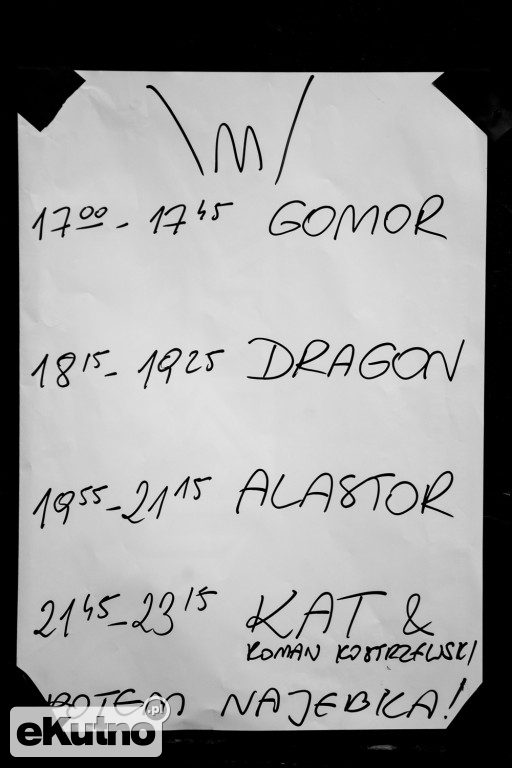 \m/
17⁰⁰ - 17⁴⁵ GOMOR
18¹⁵ - 19²⁵ DRAGON
19⁵⁵ - 21¹⁵ ALASTOR
21⁴⁵ - 23¹⁵ KAT &
ROMAN KOSTRZEWSKI
POTEM NAJEBKA!
eKutno.pl